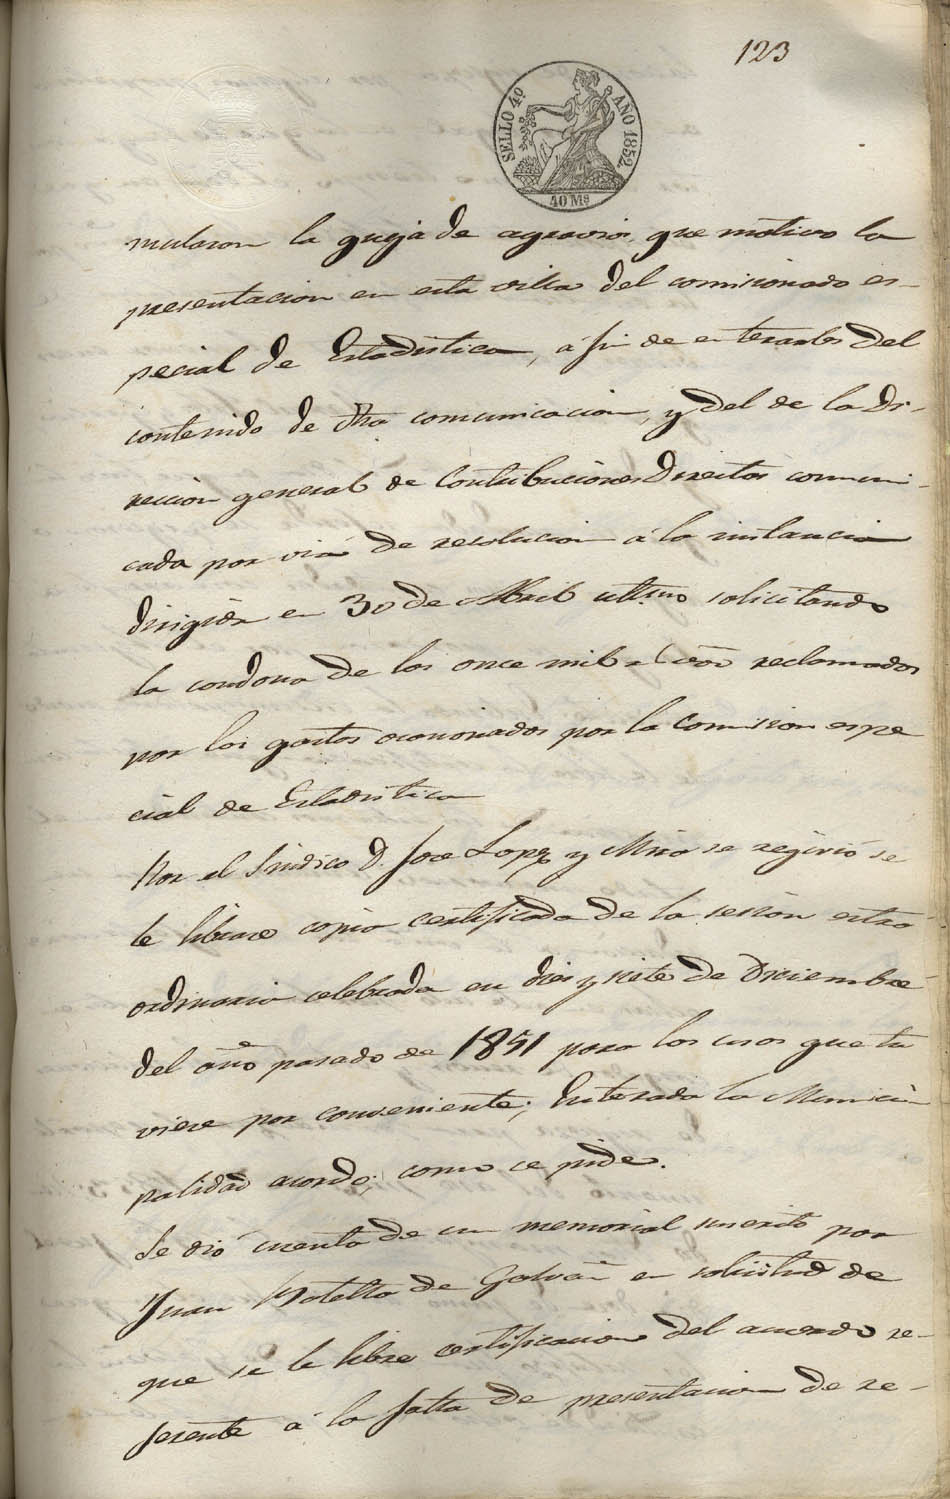 123
SELLO 4º AÑO 1852
40 Ms
mularon la queja de agravios, que motivo la
presentacion en esta villa del comisionado es-
pecial de Estadistica, á fin de enterarles del
contenido de dha comunicacion, y del de la Di-
reccion general de Contribuciones Directas comuni-
cada por via de resolucion á la instancia
dirigida en 30 de Abril ultimo solicitando
la condona de los once mil reclamados
por los gastos ocasionados por la Comision espe
cial de Estadistica
Por el Sindico D. Jose Lopez y Miro se regirió se
le librase copia certificada de la sesion estra-
ordinaria celebrada en diez y siete de Diciembre
del año pasado de 1851 para los usos que tu
viere por conveniente; Enterada la Munici-
palidad acordo; como se pide.
Se dió cuenta de un memorial suscrito por
Juan Botella de Galvañ en solicitud de
que se le libre certificacion del acuerdo re-
ferente á la falta de presentacion de re-